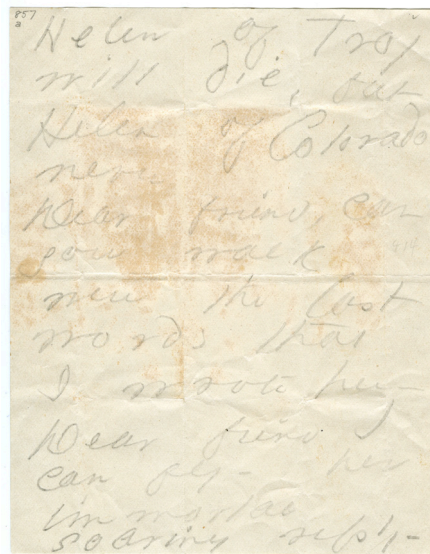 857
a
Helen of Troy
will die, but
Helen of Colorado
never
Dear friend, can
you walk
were the last
words that
I wrote her -
Dear friend I
can fly - her
immortal
soaring reply -